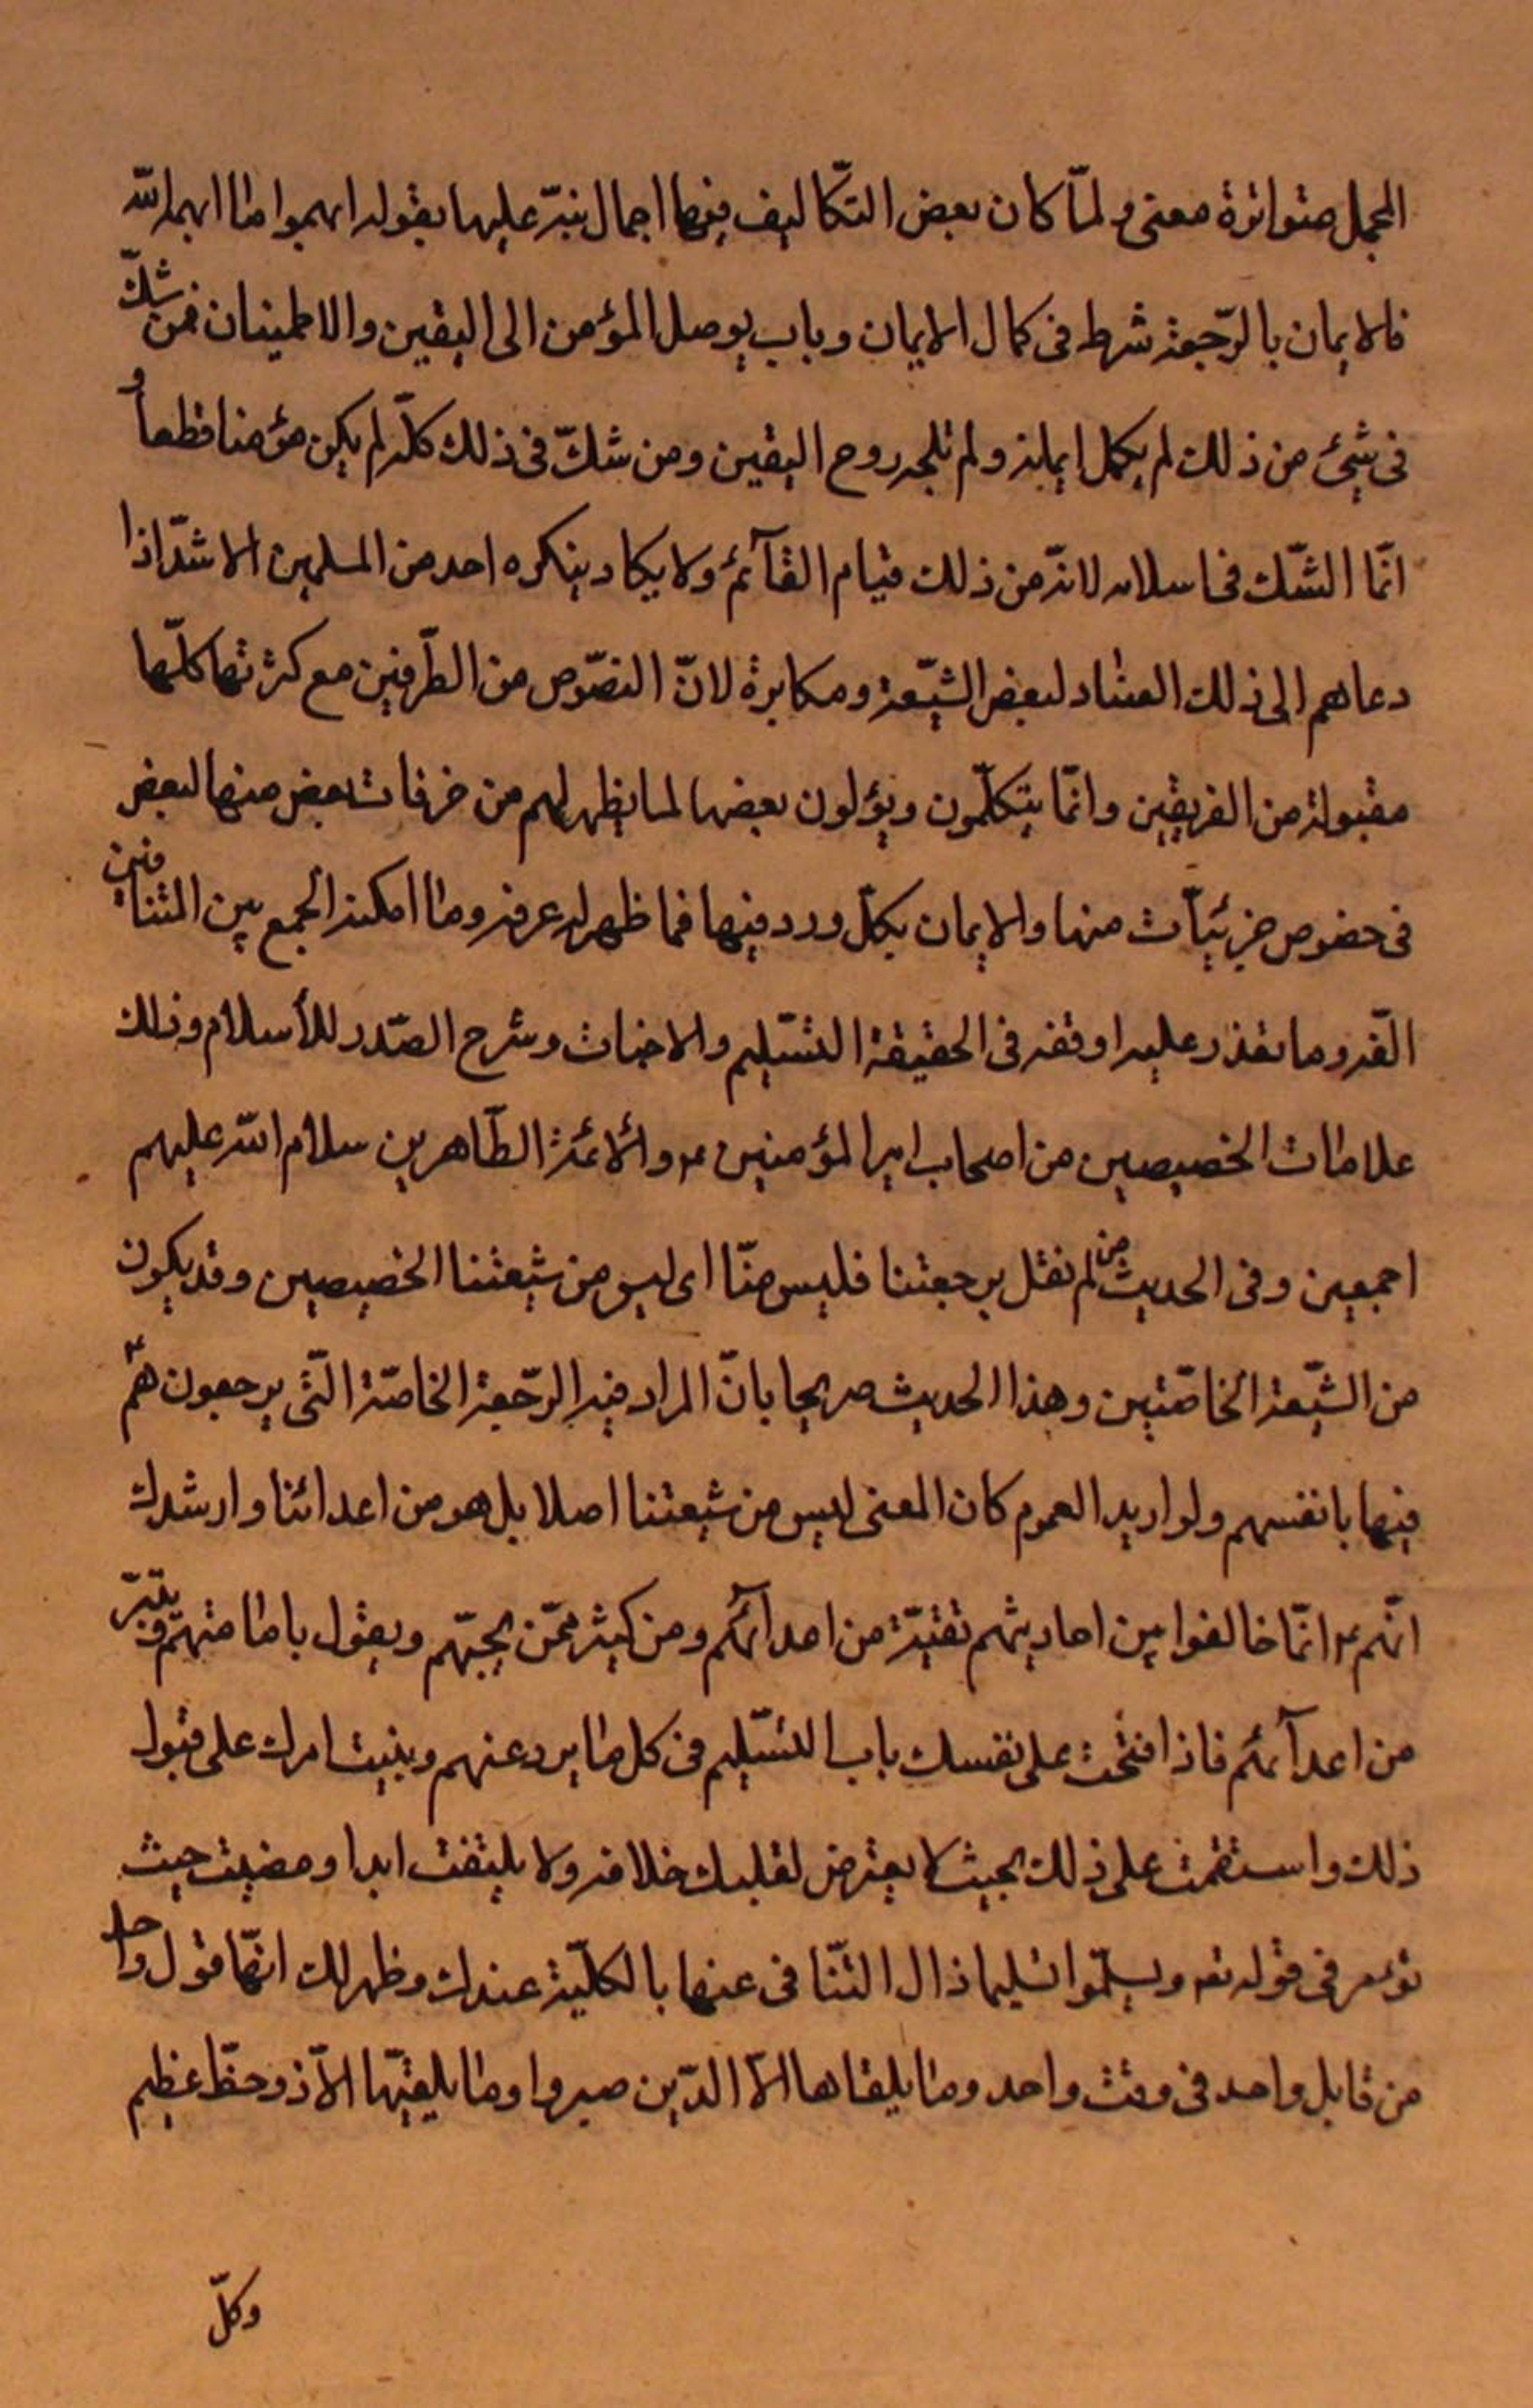 المجمل متواترة معنى ولمّا كان بعض التكّاليف فيها اجمال نبّه عليها بقوله ابهموا ما ابهمه اللّه
فالايمان بالرّجعة شرط فى كمال الايمان وباب يوصل المؤمن الى اليقين والاطمينان فمن شكّ
فى شيئ من ذلك لم يكمل ايمانه ولم تلجه روح اليقين ومن شكّ فى ذلك كلّه لم يكن مؤمنا قطعا و
انّما الشّك فى اسلامه لانّه من ذلك قيام القآئم ولا يكاد ينكره احد من المسلمين الا شذّاذا
دعاهم الى ذلك العناد لبعض الشّيعة ومكابرة لانّ النصّوص من الطّرفين مع كثرتها كلّها
مقبولة من الفريقين وانّما يتكلّمون ويؤلون بعضها لما يظهر لهم من خرفات بعض منها لبعض
فى خصوص جزئيّات منها والايمان بكلّ ورد فيها فما ظهر له عرفه وما امكنه الجمع بين المتنافين
الّفه وما تعذر عليه اوقفه فى الحقيقة التسّليم والاخبات وشرح الصّدر للأسلام وذلك
علامات الخصيصين من اصحاب امير المؤمنين ع والأئمة الطّاهرين سلام اللّه عليهم
اجمعين وفى الحديث من لم نقل برجعتنا فليس منّا اى ليس من شيعتنا الخصيصين وقد يكون
من الشّيعة الخاصّتين وهذا الحديث صريحا بانّ المراد فيه الرّجعة الخاصّة الّتى يرجعون هم ع
فيها بانفسهم ولو اريد العموم كان المعنى ليس من شيعتنا اصلا بل هو من اعدائنا وارشدك
انّهم ع انّما خالفوا بين احاديثهم تقيّة من اعدآئهم ومن كثير ممّن يحبّهم ويقول بامامتهم ويتبرّ
من اعدآئهم فاذا فتحت على نفسك باب التسّليم فى كل ما يرد عنهم وبنيت امرك على قبول
ذلك واستقمت على ذلك بحيث لا يعترض لقلبك خلافه ولا يلتفت ابدا ومضيت حيث
تؤمر فى قوله تع ويسلّموا تسليما ذال التّنافى عنها بالكلّية عندك وظهر لك انهّا قول واحد
من قابل واحد فى وقت واحد وما يلقاها الاّ الذّين صبروا وما يلقيّها الاّ ذو حظّ عظيم
وكلّ